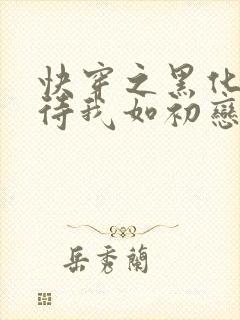 快穿之黑化
待我如初戀
岳秀蘭